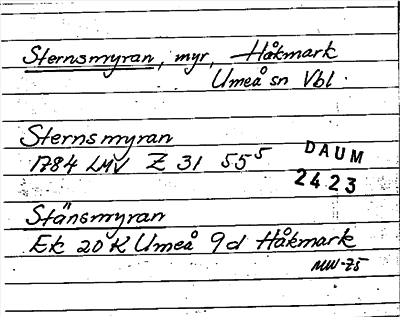 Sternsmyran, myr, Håkmark
Umeå sn Vbl.
Sternsmyran
1784 LMV Z 31 55⁵
DAUM
2423
Stänsmyran
Ek 20 K Umeå 9d Håkmark
MW-75